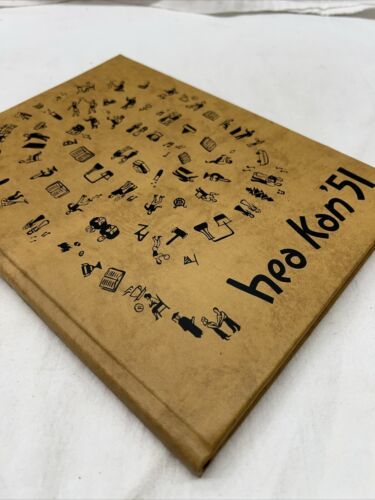 heo Kan '51